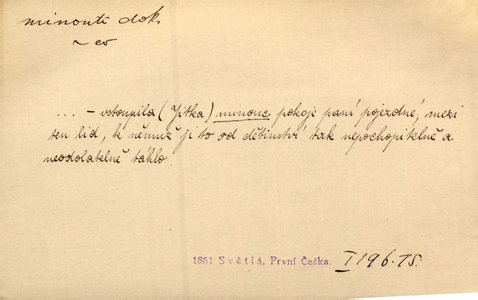 minouti dok.
~ co
... – vstoupila (Jitka) minouc pokoje paní pojezdné, mezi
ten lid, k němuž ji to od dětinství tak nepochopitelně a
neodolatelně táhlo.
1861 Světlá, První Češka. I 196.15.